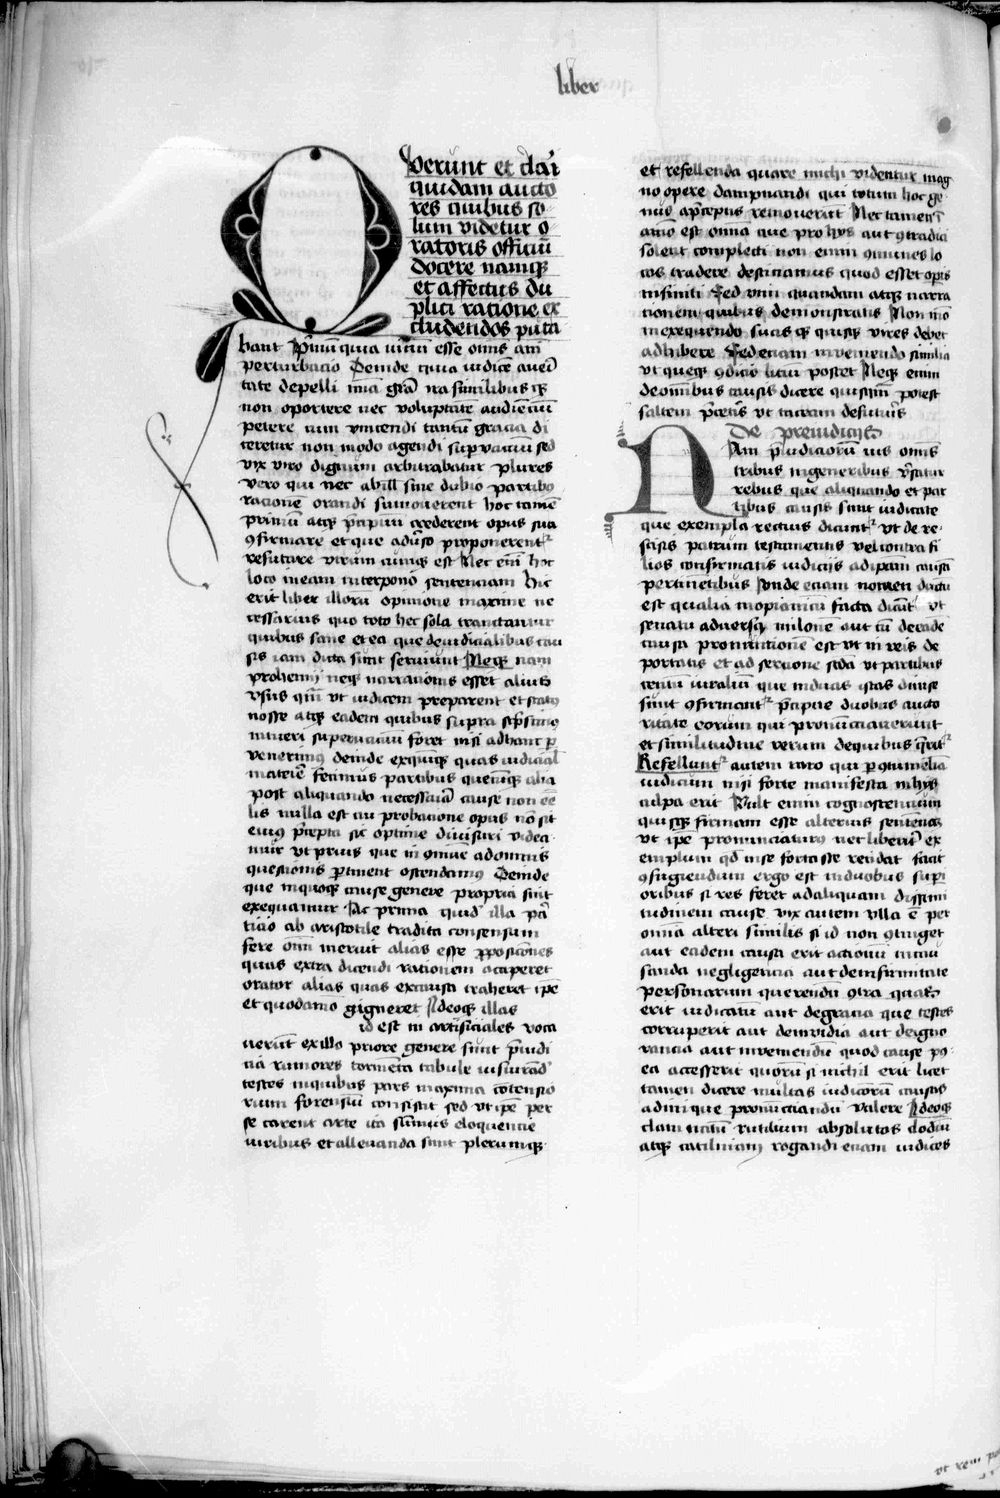 liber
Fuerunt et clari
quidam aucto
res quibus so
lum videtur o
ratoris officiū
docere namq̨
et affectus du
plici ratione ex
cludendos puta
bant P̄mū quia vitiū esse omīs aīī
perturbatio Deinde quia iudicē a veri
tate depelli mīa grā ira similibus q̨
non oportere nec voluptatē audiētiū
petere cum vincendi tantū gracia di
ceretur non modo agendi sup̱vacuū sed
vix viro dignum arbitrabatur plures
vero qui nec ab ill sine dubio partibꝰ
rationē orandi sumoverent hoc tamē
primū atq̨ p̄cipuū crederent opus sua
ꝯfirmare et que adūso proponerentᵘ
refutare Utrum cūq̨ est Nec em̄ hoc
loco meam interpono sentenciam hic
erit liber illorū opinione maxime ne
cessarius quo toto hec sola tractantur
quibus sane et ea que de iudicialibus cau
sis iam dicta sunt seruiunt Neq̨ nam
prohemij neq̨ narrationis esset alius
vsus q̄m vt iudicem preparent et statꝰ
nosse atq̨ eadem quibus supra sc̄psimꝰ
intueri supervacuū foret nisi ad hanc p̱
venerimꝰ deinde ex quinq̨ quas iudicial
materiē fecimus partibus quecūq̨ alia
post aliquando necessaria cause non eē
lis nulla est cui probatione opus nō sit
eiuꝰ p̄cepta sic optime divisuri videa
mur vt prius que in ꝯmune ad omnis
questionis p̱tinent ostendamꝰ Deinde
que in quoq̨ cause genere propria sint
exequamur Ac prima quid illa pā
ticio ab aristotile tradita consensum
fere oīm meruit alias esse ꝓposicōnes
quas extra dicendi rationem acciperet
orator alias quas ex causa traheret ip̄e
et quodamō gigneret Ideoq̨ illas
id est in artificiales voca
uerūt ex illo priore genere sunt p̄iudi
cia rumores tormēta tabule iusiurād
testes in quibus pars maxima cōtencio
rum forensiū consistit sed vt ip̄e per
se carent arte ita sūmis eloquentie
viribus et allevanda sunt plerumq̨
et refellenda quare michi videntur mag
no opere dampnandi qui totum hoc ge
nus a p̄ceptis removerūt Nec tamen ī
aīo est omīa que pro hijs aut ꝯtra dici
solent complecti non enim omnes lo
cos tradere destinamus quod esset oꝑis
infiniti Sed viam quandam atq̨ narra
tionem quibus demonstratis Non mō
in exequendo suas q̨ quisq̨ vires debet
adhibere Sed eciam inveniendo similia
vt queq̨ ꝯdicio litiū postet Neq̨ enim
de omnibus causis dicere quisq̄m potest
saltem p̄teritis vt taceam de futuris
De preiudicijs
Nam p̄iudiciorū vis omīs
tribus in generibus v̄satur
rebus que aliquando et par
tibus causis sunt iudicate
que exempla rectius dicūntᵘ vt de re
scissis patrum testamentis vel contra fi
lios confirmatis iudicijs ad ip̄am causā
pertinētibus Unde eciam nomen ductū
est qualia in opianicū facta dicūt vt
senatu adversq̨ milonē aut cū de eade
causa pronūtiatiōnē est vt in reis de
portatis et ad sercione scda vt partibus
centū viralium que in duas istas divise
sunt ꝯfirmantᵘ p̄cipue duobus aucto
ritate eorum qui pronūnciauerunt
et similitudine rerum de quibus q̄ritᵘ
Refelluntᵘ autem raro qui p̱ ꝯtumeliā
iudicum nisi forte manifesta in hijs
culpa erit Vult enim cognoscentium
quisq̨ firmam esse alterius sententiā
vt ip̄e pronunciaturꝰ nec libenū ex
emplum qd̄ in se fortasse reddat facit
ꝯfugiendum ergo est in duobus supi
oribus si res feret ad aliquam dissimi
tudinem cause Vix autem vlla ē per
omnia alteri similis si id non ꝯtinget
aut eadem causa erit actionū incu
sanda negligencia aut de infirmitate
personarum querendū ꝯtra quas
erit iudicatū aut de gratia que testes
corruperit aut de invidia aut de igno
rancia aut inveniendū quod cause po
ea accesserit quorū si nichil erit licet
tamen dicere multas iudicorū causas
ad inique pronūciandū valere Ideoq̨
dam natū rutilium absolutos clodiū
atq̨ catilinam rogandi eciam iudices